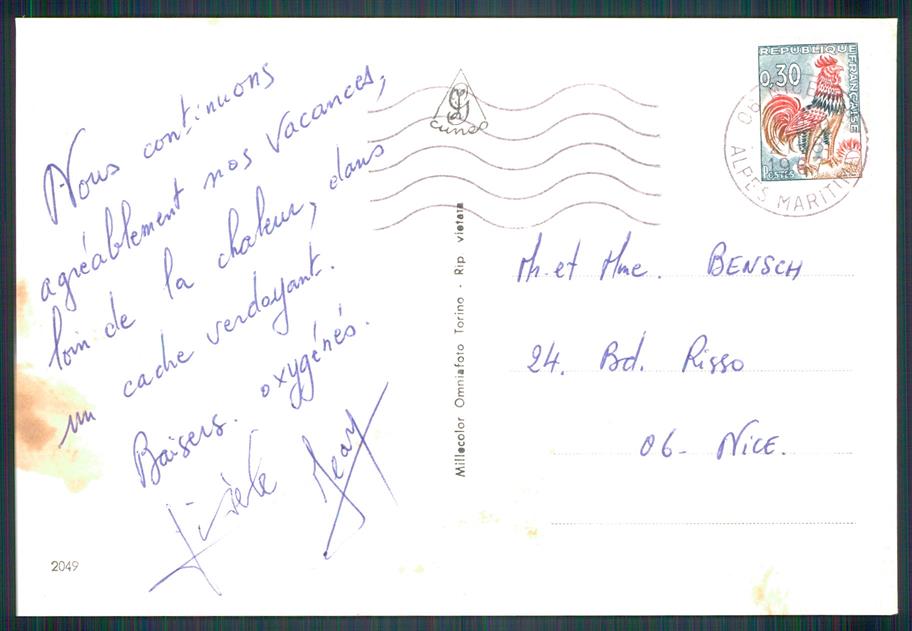 Nous continuons
agréablement nos vacances,
loin de la chaleur, dans
un cadre verdoyant.
Baisers oxygénés.
Gisèle Jean
2049
cuneo
Millecolor Omniafoto Torino - Rip vietata
RÉPUBLIQUE
FRANÇAISE
0,30
POSTES
06
ALPES MARITIMES
M. et Mme. BENSCH
24. Bd. Risso
06- NICE.